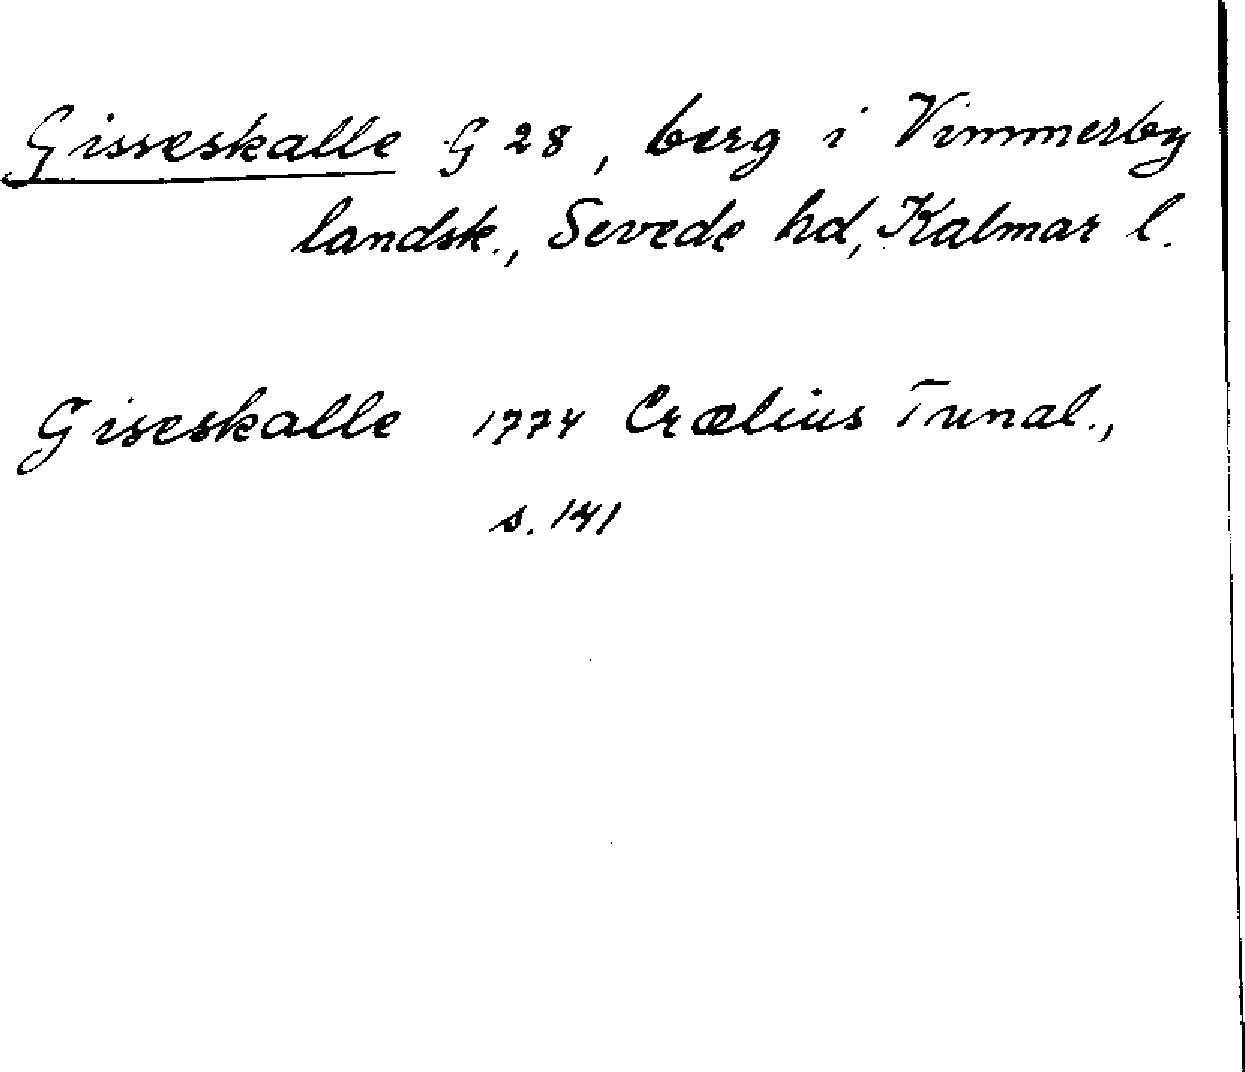 Gisseskalle G 28, berg i Vimmerby
landsk., Sevede hd, Kalmar l.
Giseskalle 1774 Crælius Tunal.,
s. 141